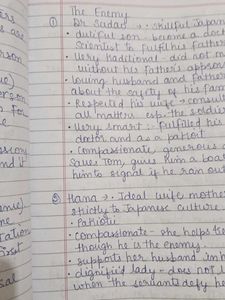 The Enemy
① Dr Sadao → • skillful Japan
• dutiful son - become a doct
scientist to fulfil his father
• Very traditional - did not m
without his father's approv
• Loving husband and father
about the safety of his fam
• Respected his wife → consult
all matters esp. the soldier
• Very smart :- fulfilled his
doctor and as a patriot
• Compassionate, generous
saves Tom, gives him a boat
him to signal if he ran out
② Hana → • Ideal wife mother
strictly to Japanese culture
• Patriot
• compassionate - she helps
though he is the enemy.
• supports her husband in h
• dignified lady - does not
when the servants defy he